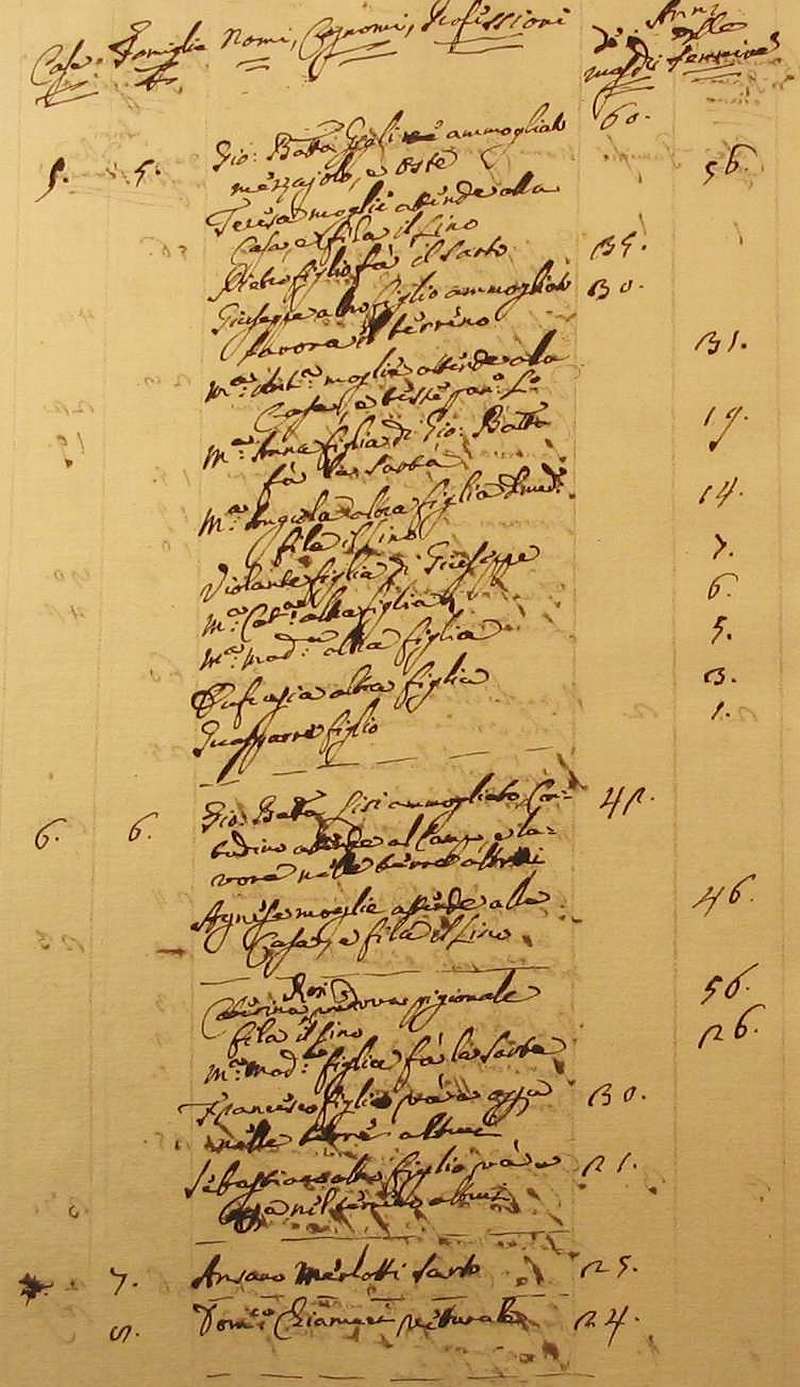 Case Famiglie Nomi, Cognomi, Professioni Anni
de maschi delle femine
5. 5. Gio: Batta ammogliato 60.
mezzajolo, e oste
Teresa moglie attende alla 56.
Casa, e fila il Lino
Pietro figlio fà il Sarto 35.
Giuseppe altro figlio ammogliato 30.
lavora il terreno
M.a Ant.a moglie attende alla 31.
Casa, e tesse
M.a Anna figlia di Gio: Batta 19.
fà la Sarta
M.a Angiola altra figlia 14.
fila il Lino
Violante figlia di Giuseppe 7.
M.a Cat.a altra figlia 6.
M.a Mad.a altra figlia 5.
Eufrasia altra figlia 3.
Guasparre figlio 1.
6. 6. Gio: Batta Lisi ammogliato Con= 42.
tadino attende al Campo, e la=
vora nelle terre altrui
Agnese moglie attende alla 46.
Casa, e fila il Lino
Rosi
Caterina vedova pigionale 56.
fila il Lino
M.a Mad.a figlia fà la Sarta 26.
Francesco figlio và a opra 30.
nelle terre altrui
Sebastiano altro figlio và a 21.
opra nel terreno altrui
7. Ansano Merlotti Sarto 25.
8. Dom.co vetturale 24.